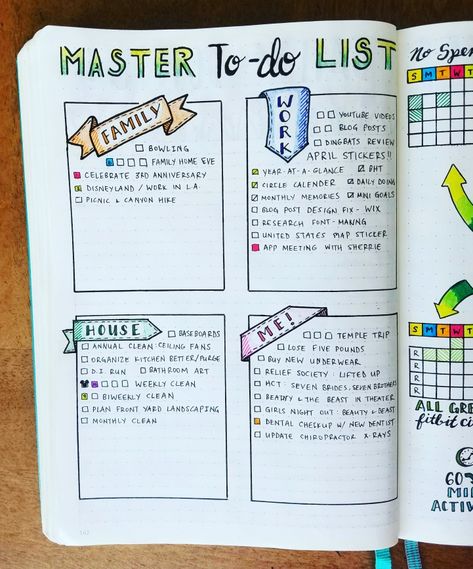 MASTER To-do LIST
FAMILY
BOWLING
FAMILY HOME EVE
CELEBRATE 3RD ANNIVERSARY
DISNEYLAND / WORK IN L.A.
PICNIC & CANYON HIKE
WORK
YOUTUBE VIDEOS
BLOG POSTS
DINGBATS REVIEW
APRIL STICKERS!!
YEAR-AT-A-GLANCE BHT
CIRCLE CALENDER DAILY DOING
MONTHLY MEMORIES MINI GOALS
BLOG POST DESIGN FIX - WIX
RESEARCH FONT-MAKING
UNITED STATES MAP STICKER
APP MEETING WITH SHERRIE
HOUSE
BASEBOARDS
ANNUAL CLEAN: CEILING FANS
ORGANIZE KITCHEN BETTER/PURGE
D.I. RUN BATHROOM ART
WEEKLY CLEAN
BIWEEKLY CLEAN
PLAN FRONT YARD LANDSCAPING
MONTHLY CLEAN
ME!
TEMPLE TRIP
LOSE FIVE POUNDS
BUY NEW UNDERWEAR
RELIEF SOCIETY: LIFTED UP
HCT: SEVEN BRIDES, SEVEN BROTHERS
BEAUTY & THE BEAST IN THEATER
GIRLS NIGHT OUT: BEAUTY & BEAST
DENTAL CHECKUP W/ NEW DENTIST
UPDATE CHIROPRACTOR X-RAYS
No Spen
S M T W T
S M T W T
R
R
R
R
ALL GRE
fitbit ci
60
MI
ACTIV